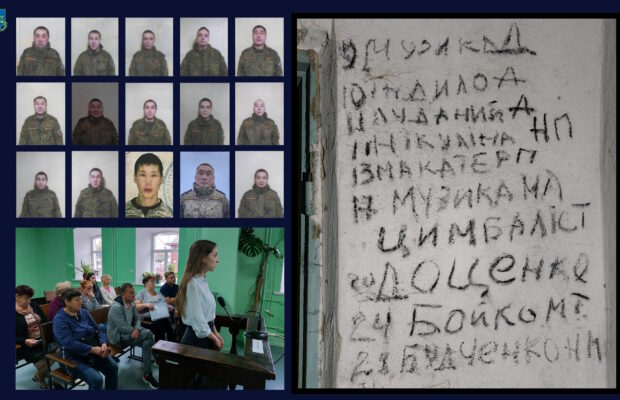 9 МУЗИКА Д
10 ІНДИЛО А
11 ЛУДАНИЙ А
НІКУЛІНА НП
13 МАКАТЕР П
17 МУЗИКА МЛ
ЦИМБАЛІСТ
20 ДОЦЕНКО
24 БОЙКО МГ
28 БУДЧЕНКО НМ